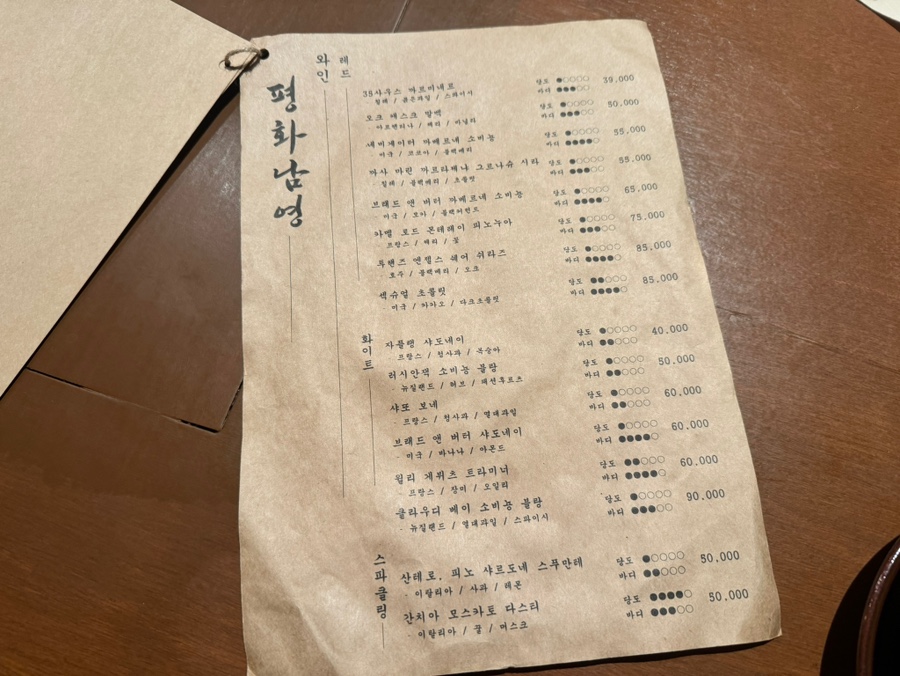 평화남영
와인
레드
38사우스 까르미네르
당도 ●○○○○ 39,000
- 칠레 / 붉은과일 / 스파이시
바디 ●●●○○
오크 캐스크 말벡
당도 ●○○○○ 50,000
- 아르헨티나 / 체리 / 바닐라
바디 ●●●○○
까베르네 소비뇽
당도 ●○○○○ 55,000
- 미국 / 코코아 / 블랙베리
바디 ●●●●○
그르나슈 시라
당도 ●○○○○ 55,000
- 칠레 / 블랙베리 / 초콜릿
바디 ●●●○○
브래드 앤 버터 까베르네 소비뇽
당도 ●○○○○ 65,000
- 미국 / 오크 / 블랙커런트
바디 ●●●●○
카멜 로드 몬테레이 피노누아
당도 ●○○○○ 75,000
- 프랑스 / 체리 / 꽃
바디 ●●●○○
투핸즈 엔젤스 쉐어 쉬라즈
당도 ●○○○○ 85,000
- 호주 / 블랙베리 / 오크
바디 ●●●●○
섹슈얼 초콜릿
당도 ●●○○○ 85,000
- 미국 / 카카오 / 다크초콜릿
바디 ●●●●○
화이트
자플랭 샤도네이
당도 ●○○○○ 40,000
- 프랑스 / 청사과 / 복숭아
바디 ●●○○○
러시안잭 소비뇽 블랑
당도 ●○○○○ 50,000
- 뉴질랜드 / 허브 / 패션후르츠
바디 ●●○○○
샤또 보네
당도 ●○○○○ 60,000
- 프랑스 / 청사과 / 열대과일
바디 ●●○○○
브래드 앤 버터 샤도네이
당도 ●○○○○ 60,000
- 미국 / 바나나 / 아몬드
바디 ●●●●○
윌리 게뷔츠 트라미너
당도 ●●○○○ 60,000
- 프랑스 / 장미 / 오일리
바디 ●●●●○
클라우디 베이 소비뇽 블랑
당도 ●○○○○ 90,000
- 뉴질랜드 / 열대과일 / 스파이시
바디 ●●●○○
스파클링
산테로, 피노 샤르도네 스푸만테
당도 ●○○○○ 50,000
- 이탈리아 / 사과 / 레몬
바디 ●●○○○
간치아 모스카토 다스티
당도 ●●●●○ 50,000
- 이탈리아 / 꿀 / 머스크
바디 ●●●○○